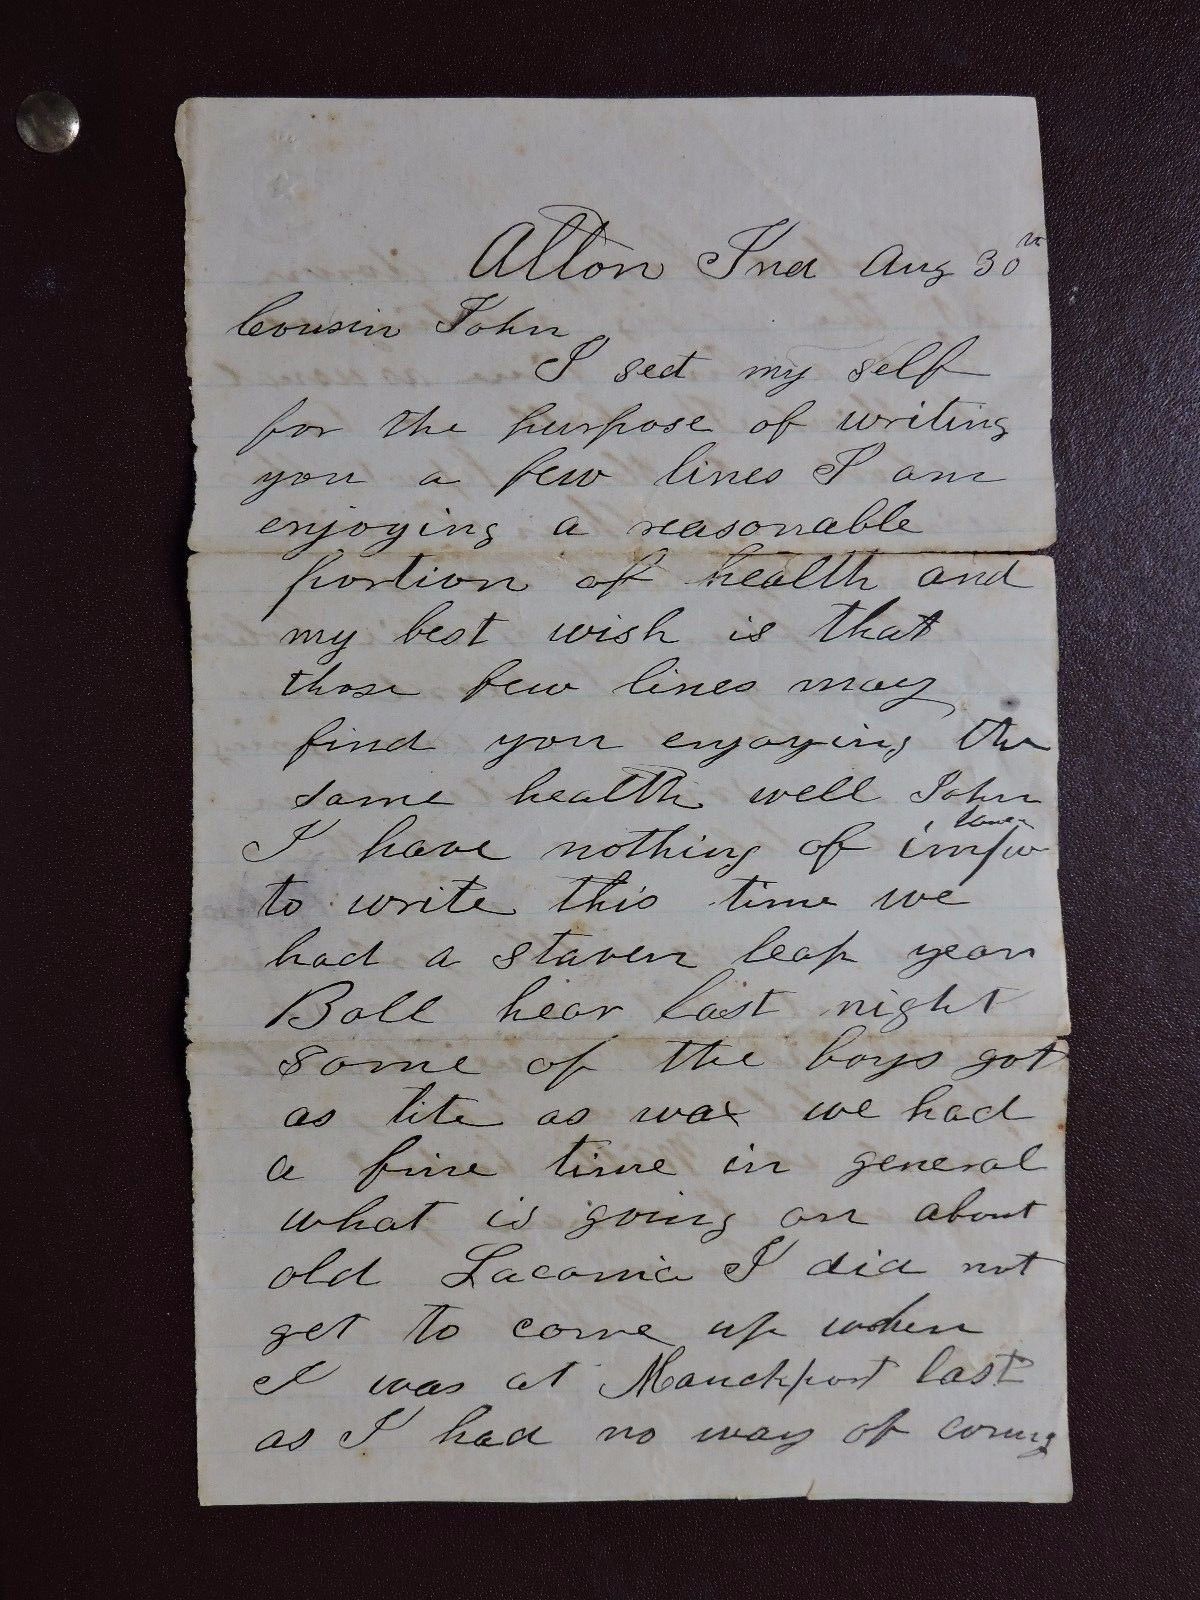 Alton Ind Aug 30th
Cousin John
I sed my self
for the purpose of writing
you a few lines I am
enjoying a reasonable
portion of health and
my best wish is that
those few lines may
find you enjoying the
same health well John
I have nothing of impor
tance
to write this time we
had a staven leap year
Ball hear last night
some of the boys got
as tite as wax we had
a fine time in general
what is going on about
old Laconia I did not
get to come up when
I was at Mauckport last
as I had no way of coming